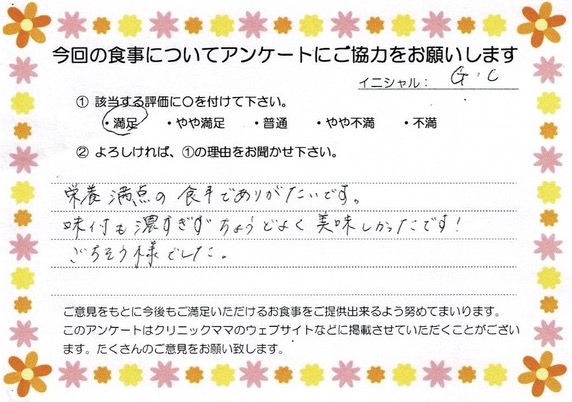 今回の食事についてアンケートにご協力をお願いします
イニシャル： G.C
① 該当する評価に〇を付けて下さい。
・満足 ・やや満足 ・普通 ・やや不満 ・不満
② よろしければ、①の理由をお聞かせ下さい。
栄養満点の食事でありがたいです。
味付も濃すぎずちょうどよく美味しかったです！
ごちそう様でした。
ご意見をもとに今後もご満足いただけるお食事をご提供出来るよう努めてまいります。
このアンケートはクリニックママのウェブサイトなどに掲載させていただくことがござい
ます。たくさんのご意見をお願い致します。